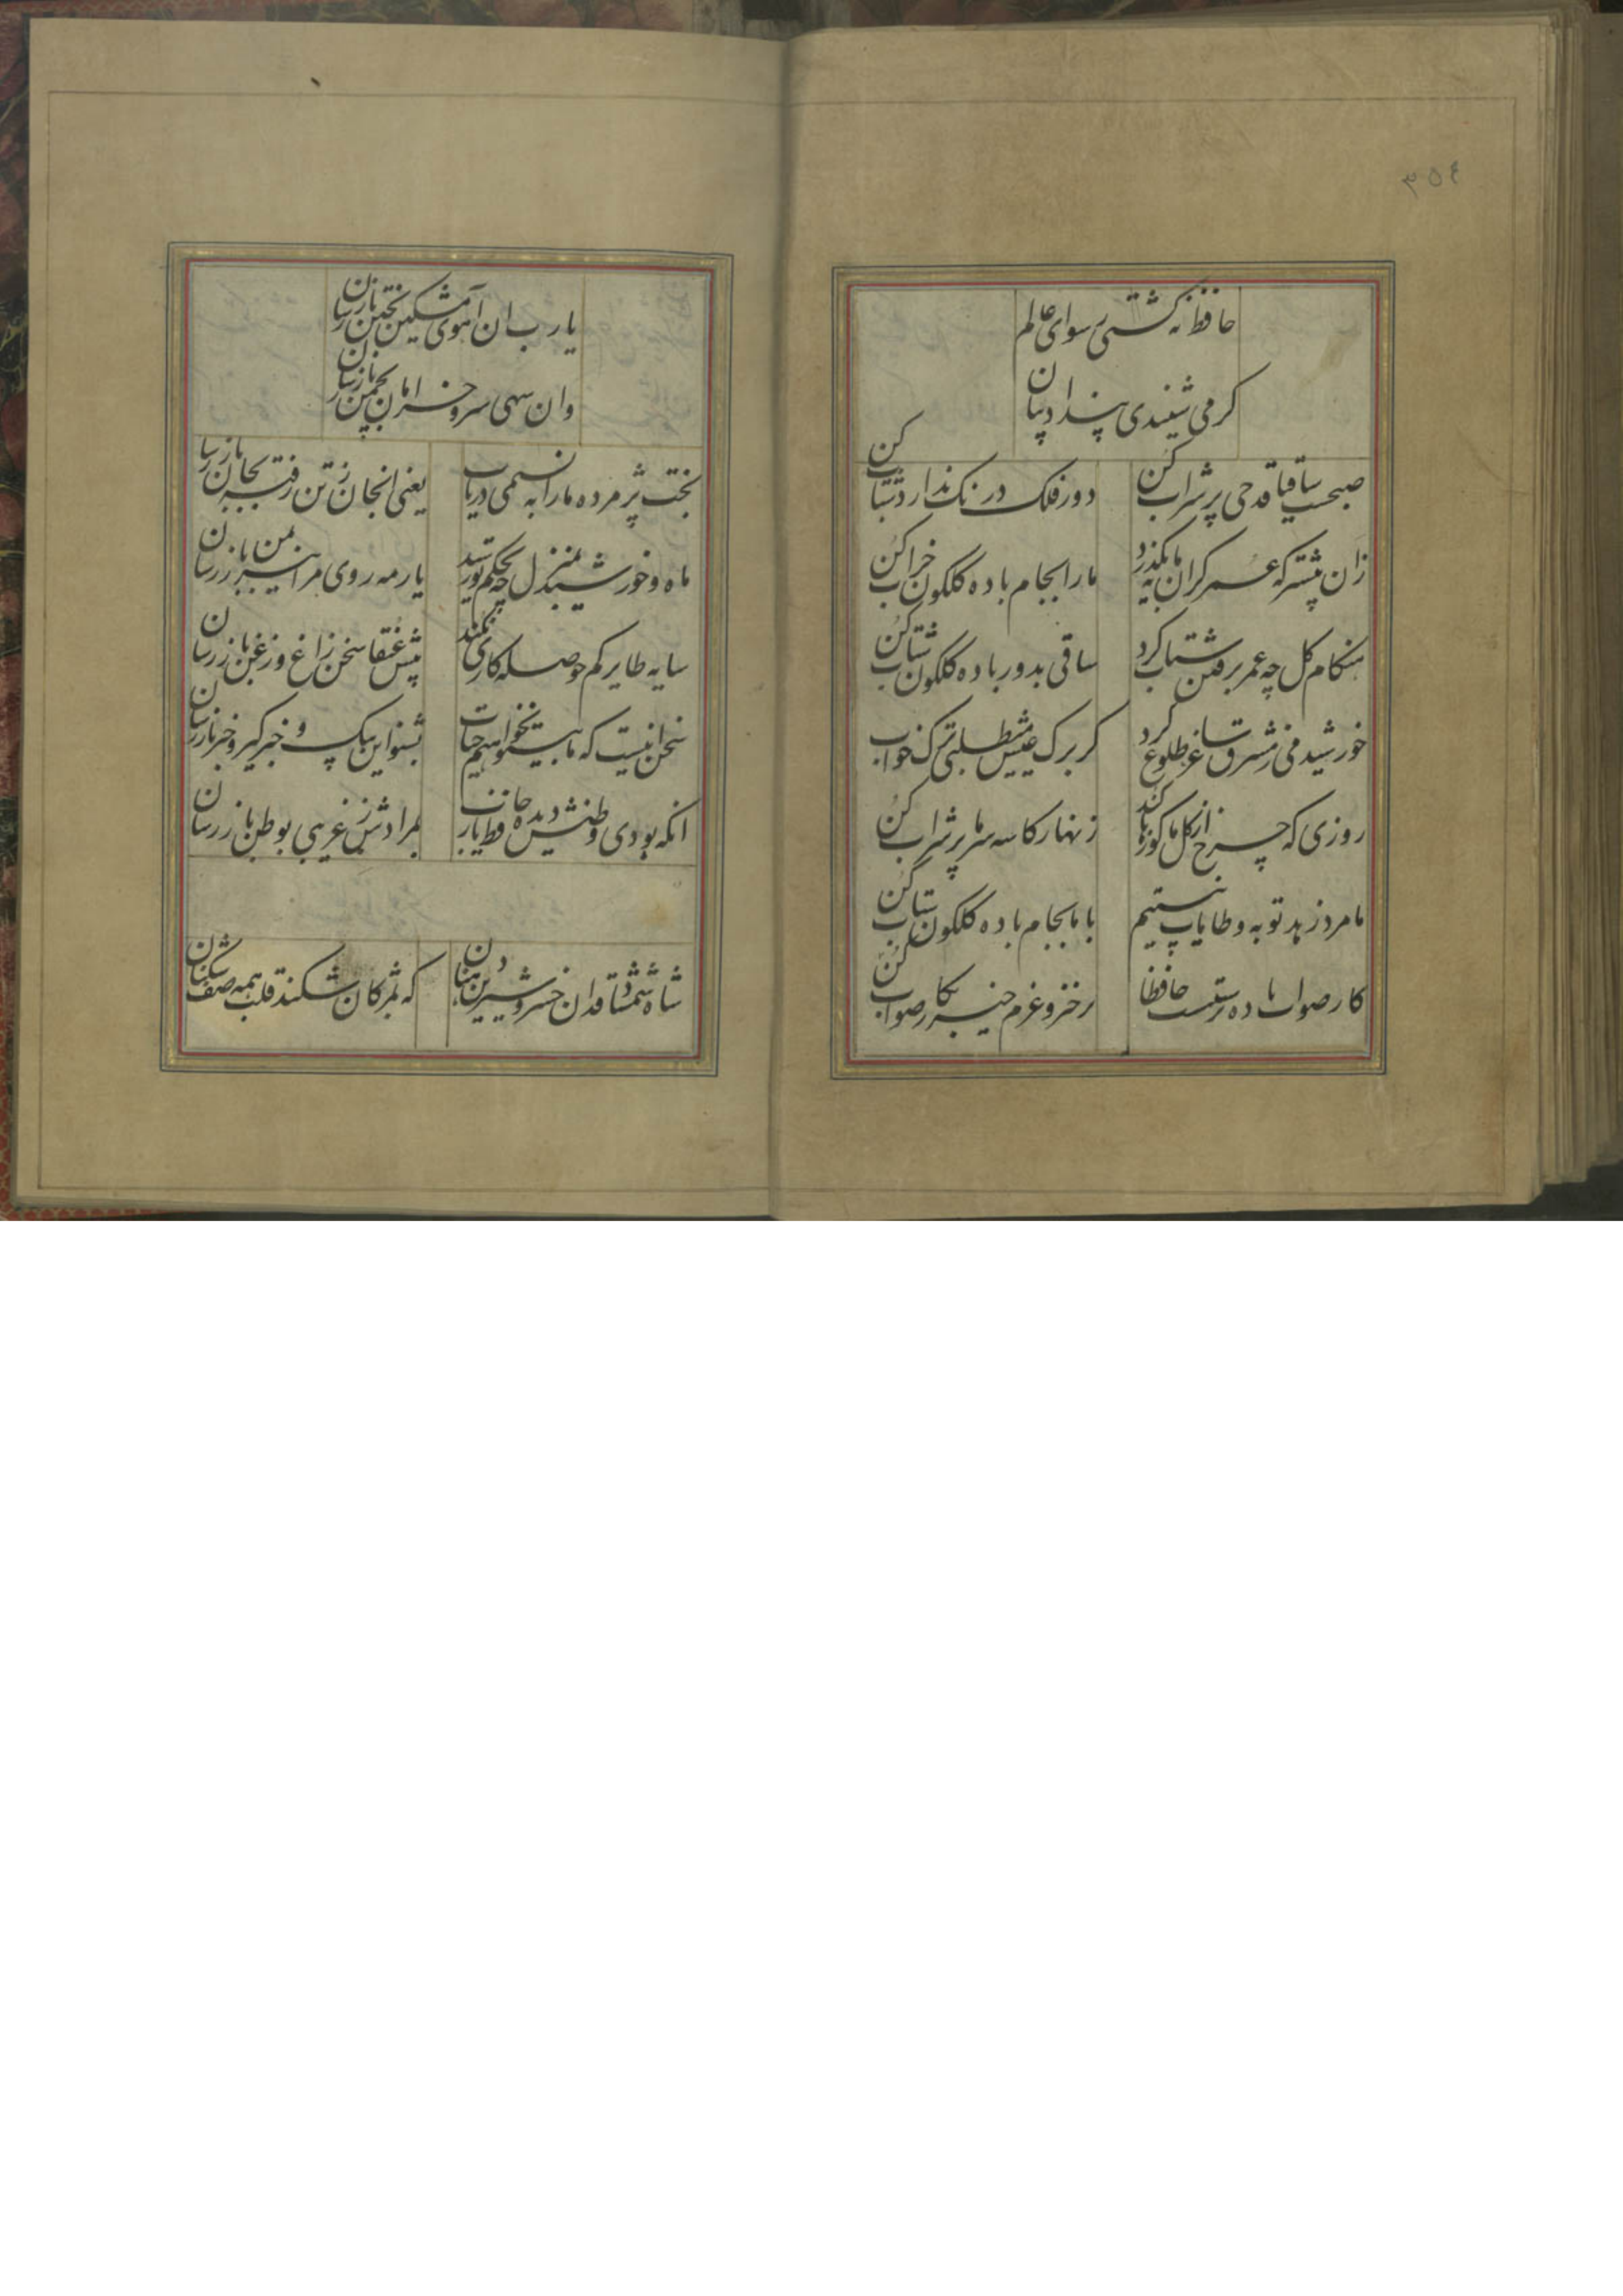 ٣٥٤
حافظ نه گشتی رسوای عالم
کر می شنیدی پند ادیبان
صبحست ساقیا قدحی پر شراب کن
دور فلک درنک ندارد شتاب کن
زان پیشتر که عمر کران مایه بگذرد
ما را بجام باده گلگون خراب کن
هنگام کل چه عمر برفتن شتاب کرد
ساقی بدور باده گلگون شتاب کن
خورشید می ز مشرق ساغر طلوع کرد
کر برک عیش می طلبی ترک خواب کن
روزی که چرخ از کل ما کوزها کند
زنهار کاسه سر ما پر شراب کن
ما مرد زهد توبه و طامات نیستیم
با ما بجام باده گلگون شتاب کن
کار صواب باده پرستیست حافظا
برخیز و عزم خیر بکار صواب کن
یا رب ان آهوی مشکین بختن باز رسان
وان سهی سرو خرامان بچمن باز رسان
بخت پژمرده ما را به نسیمی دریاب
یعنی انجان ز تن رفته بجان باز رسان
ماه و خورشید بمنزل چه بحکم تو رسید
یار مه روی مرا نیز بمن باز رسان
سایه طایر کم حوصله کاری نکند
پیش عنقا سخن زاغ و زغن باز رسان
سخن انیست که ما بیتو نخواهیم حیات
بشنو این پیک و خبر کیر و خبر باز رسان
انکه بودی وطنش دیده حافظ یا رب
بمرادش ز غریبی بوطن باز رسان
شاه شمشاد قدان خسرو شیرین دهنان
که بمژکان شکند قلب همه صف شکنان